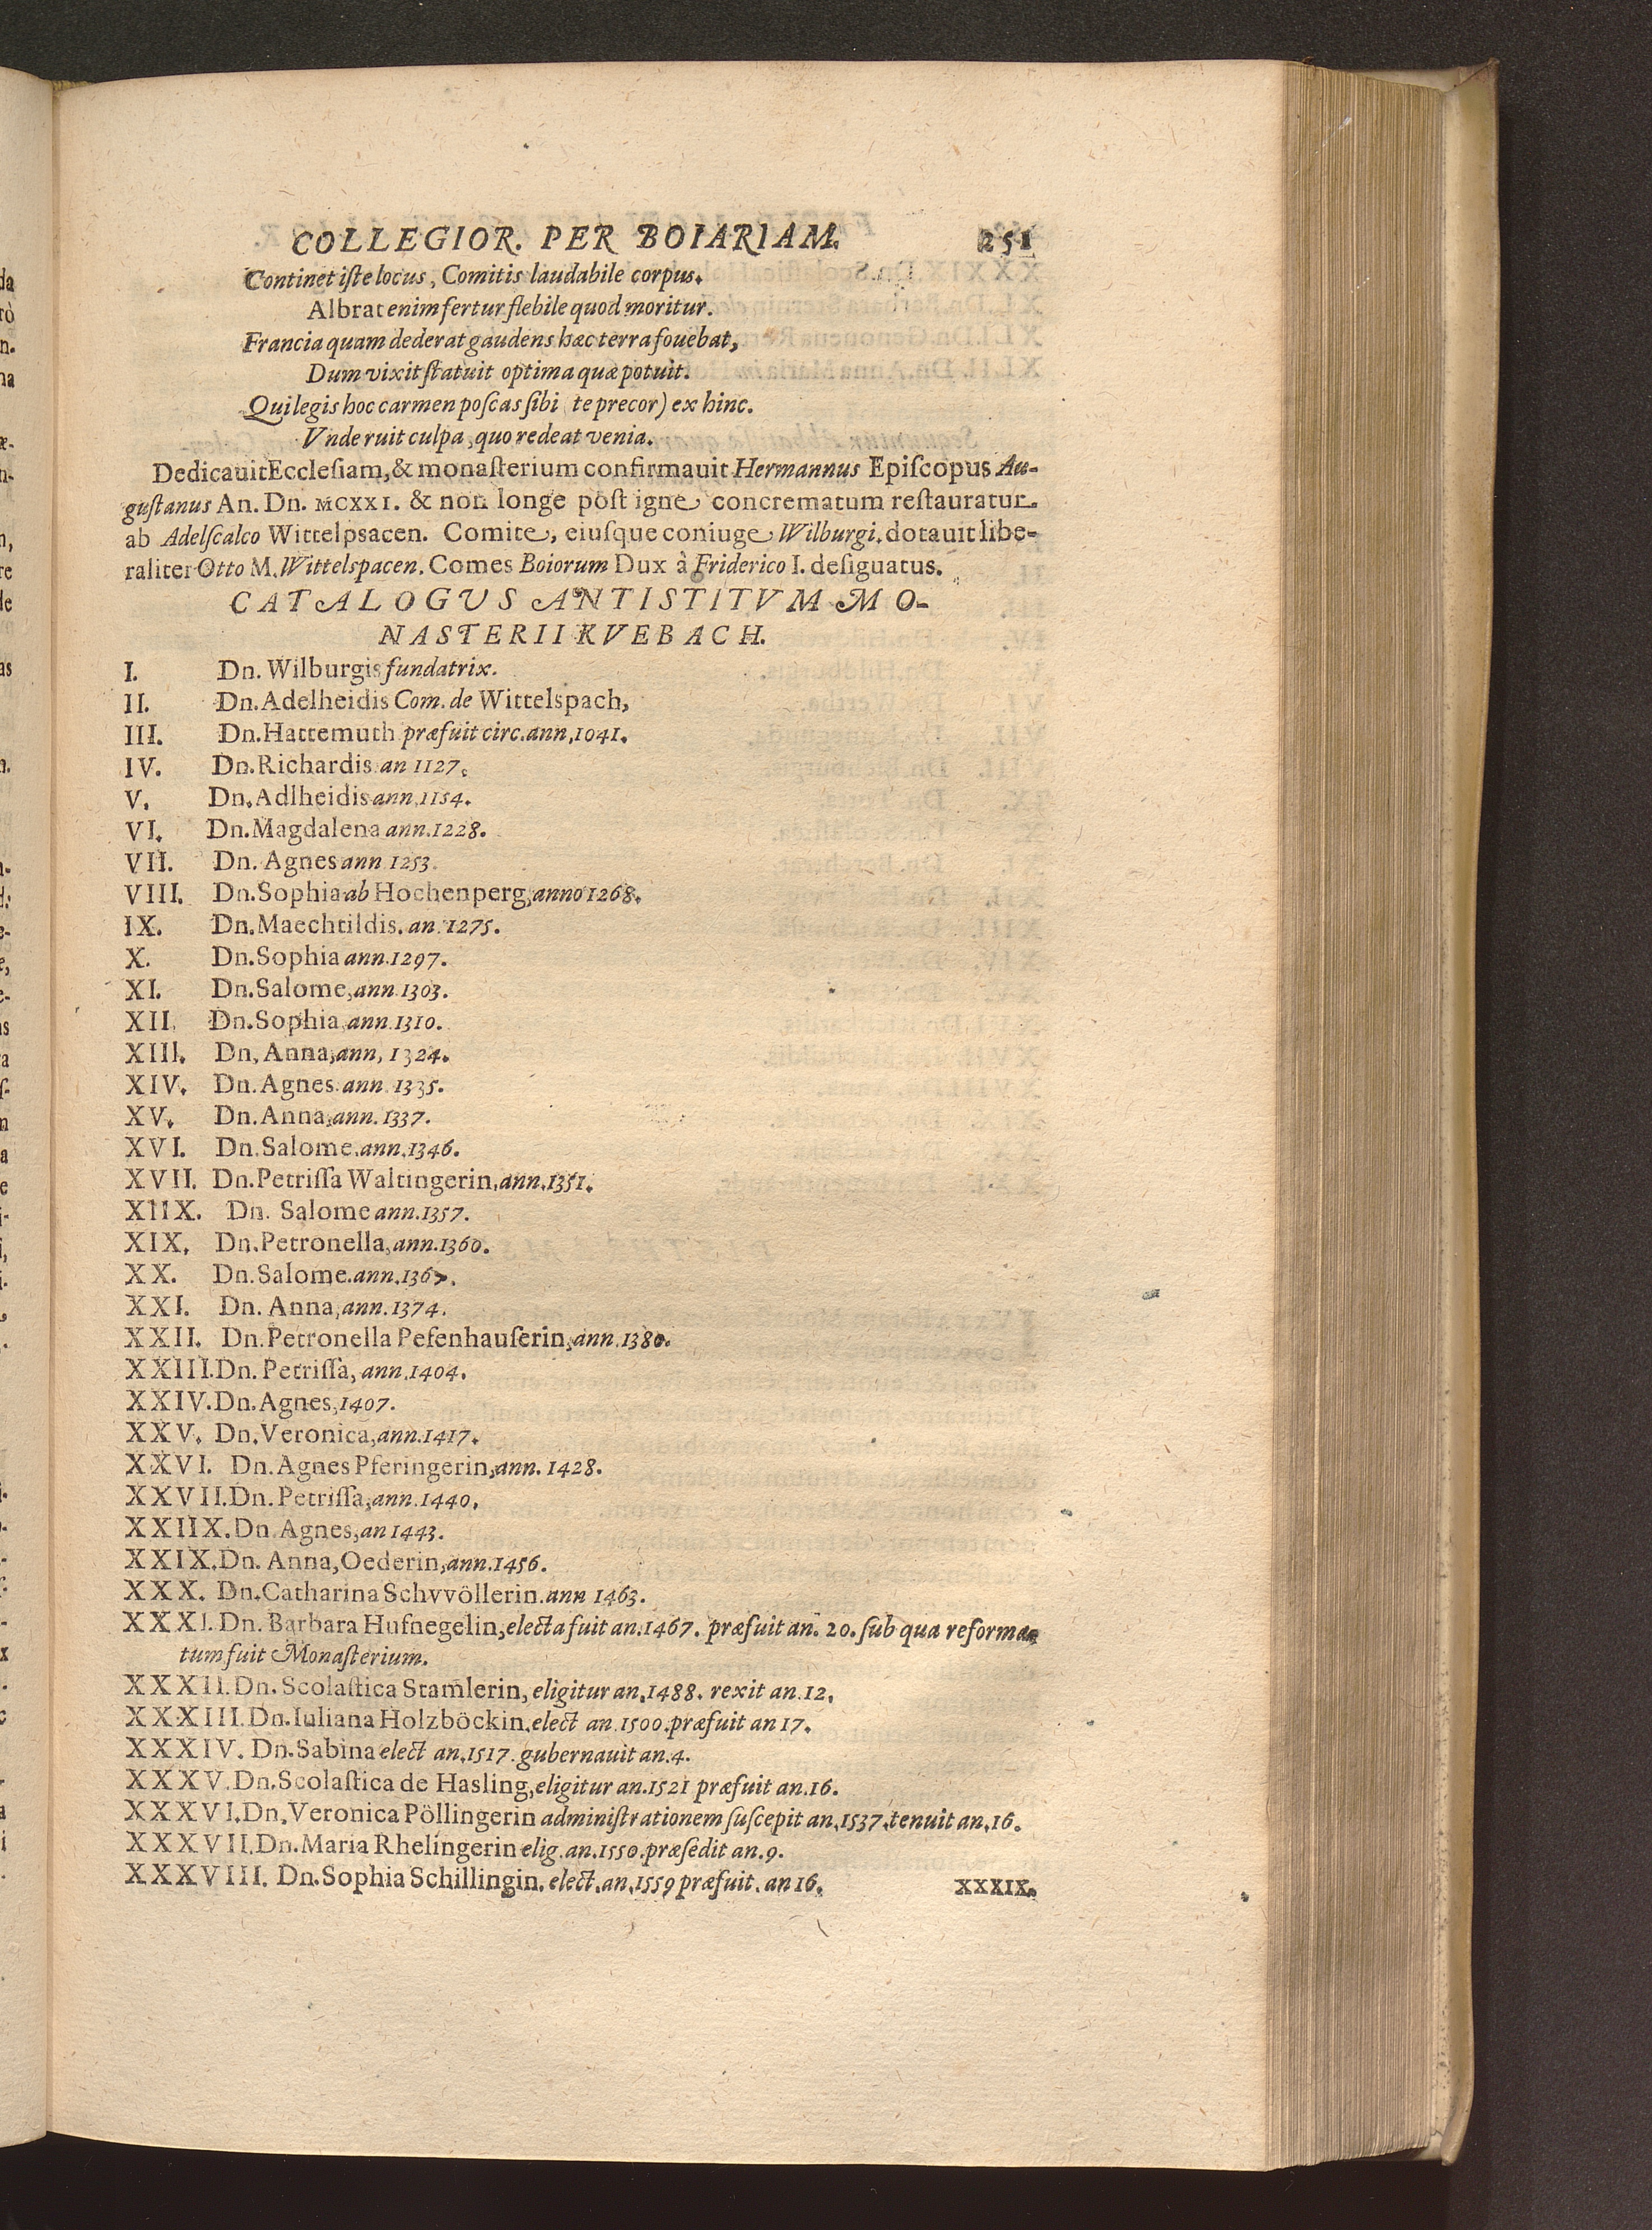 COLLEGIOR. PER BOIARIAM. 251
Continet iſte locus, Comitis laudabile corpus.
Albrat enim fertur flebile quod moritur.
Francia quam dederat gaudens hæc terra fouebat,
Dum vixit ſtatuit optima quæ potuit.
Qui legis hoc carmen poſcas ſibi te precor) ex hinc.
Vnde ruit culpa, quo redeat venia.
Dedicauit Eccleſiam, & monaſterium confirmauit Hermannus Epiſcopus Au-
guſtanus An. Dn. MCXXI. & non longe póſt igne concrematum reſtauratur
ab Adelſcalco Wittelpsacen. Comite, eiuſque coniuge Wilburgi, dotauit libe-
raliter Otto M. Wittelspacen. Comes Boiorum Dux à Friderico I. deſiguatus.
CATALOGUS ANTISTITVM MO-
NASTERII KVEBACH.
I. Dn. Wilburgis fundatrix.
II. Dn. Adelheidis Com. de Wittelspach,
III. Dn. Hattemuth præfuit circ. ann, 1041.
IV. Dn. Richardis an 1127.
V. Dn. Adlheidis ann, 1154.
VI. Dn. Magdalena ann. 1228.
VII. Dn. Agnes ann 1253.
VIII. Dn. Sophia ab Hochenperg, anno 1268.
IX. Dn. Maechtildis. an. 1275.
X. Dn. Sophia ann. 1297.
XI. Dn. Salome, ann. 1303.
XII. Dn. Sophia, ann. 1310.
XIII. Dn, Anna, ann, 1324.
XIV. Dn. Agnes. ann. 1335.
XV. Dn. Anna, ann. 1337.
XVI. Dn. Salome. ann. 1346.
XVII. Dn. Petriſſa Waltingerin, ann. 1351.
XIIX. Dn. Salome ann. 1357.
XIX. Dn. Petronella, ann. 1360.
XX. Dn. Salome. ann. 1367.
XXI. Dn. Anna, ann. 1374.
XXII. Dn. Petronella Pefenhauſerin, ann. 1380.
XXIII. Dn. Petriſſa, ann. 1404.
XXIV. Dn. Agnes, 1407.
XXV. Dn. Veronica, ann. 1417.
XXVI. Dn. Agnes Pferingerin, ann. 1428.
XXVII. Dn. Petriſſa, ann. 1440.
XXIIX. Dn Agnes, an 1443.
XXIX. Dn. Anna, Oederin, ann. 1456.
XXX. Dn. Catharina Schvvöllerin. ann 1463.
XXXI. Dn. Barbara Hufnegelin, electa fuit an. 1467. præfuit an. 20. ſub qua reforma-
tum fuit Monaſterium.
XXXII. Dn. Scolaſtica Stam̃lerin, eligitur an. 1488. rexit an. 12.
XXXIII. Dn. Iuliana Holzböckin, elect an. 1500. præfuit an 17.
XXXIV. Dn. Sabina elect an. 1517. gubernauit an. 4.
XXXV. Dn. Scolaſtica de Hasling, eligitur an. 1521 præfuit an. 16.
XXXVI. Dn. Veronica Pöllingerin adminiſtrationem ſuſcepit an. 1537. tenuit an. 16.
XXXVII. Dn. Maria Rhelingerin elig. an. 1550. præſedit an. 9.
XXXVIII. Dn. Sophia Schillingin. elect. an. 1559 præfuit. an 16. XXXIX.